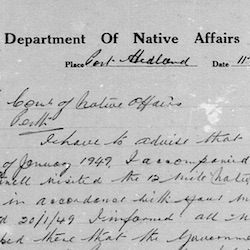 Department Of Native Affairs
Place Port Hedland Date 11
Comr of Native Affairs
Perth
I have to advise that
of January 1949, I accompanied
visited the 12 mile Native
in accordance with your
20/1/49 I informed all
there that the Governm